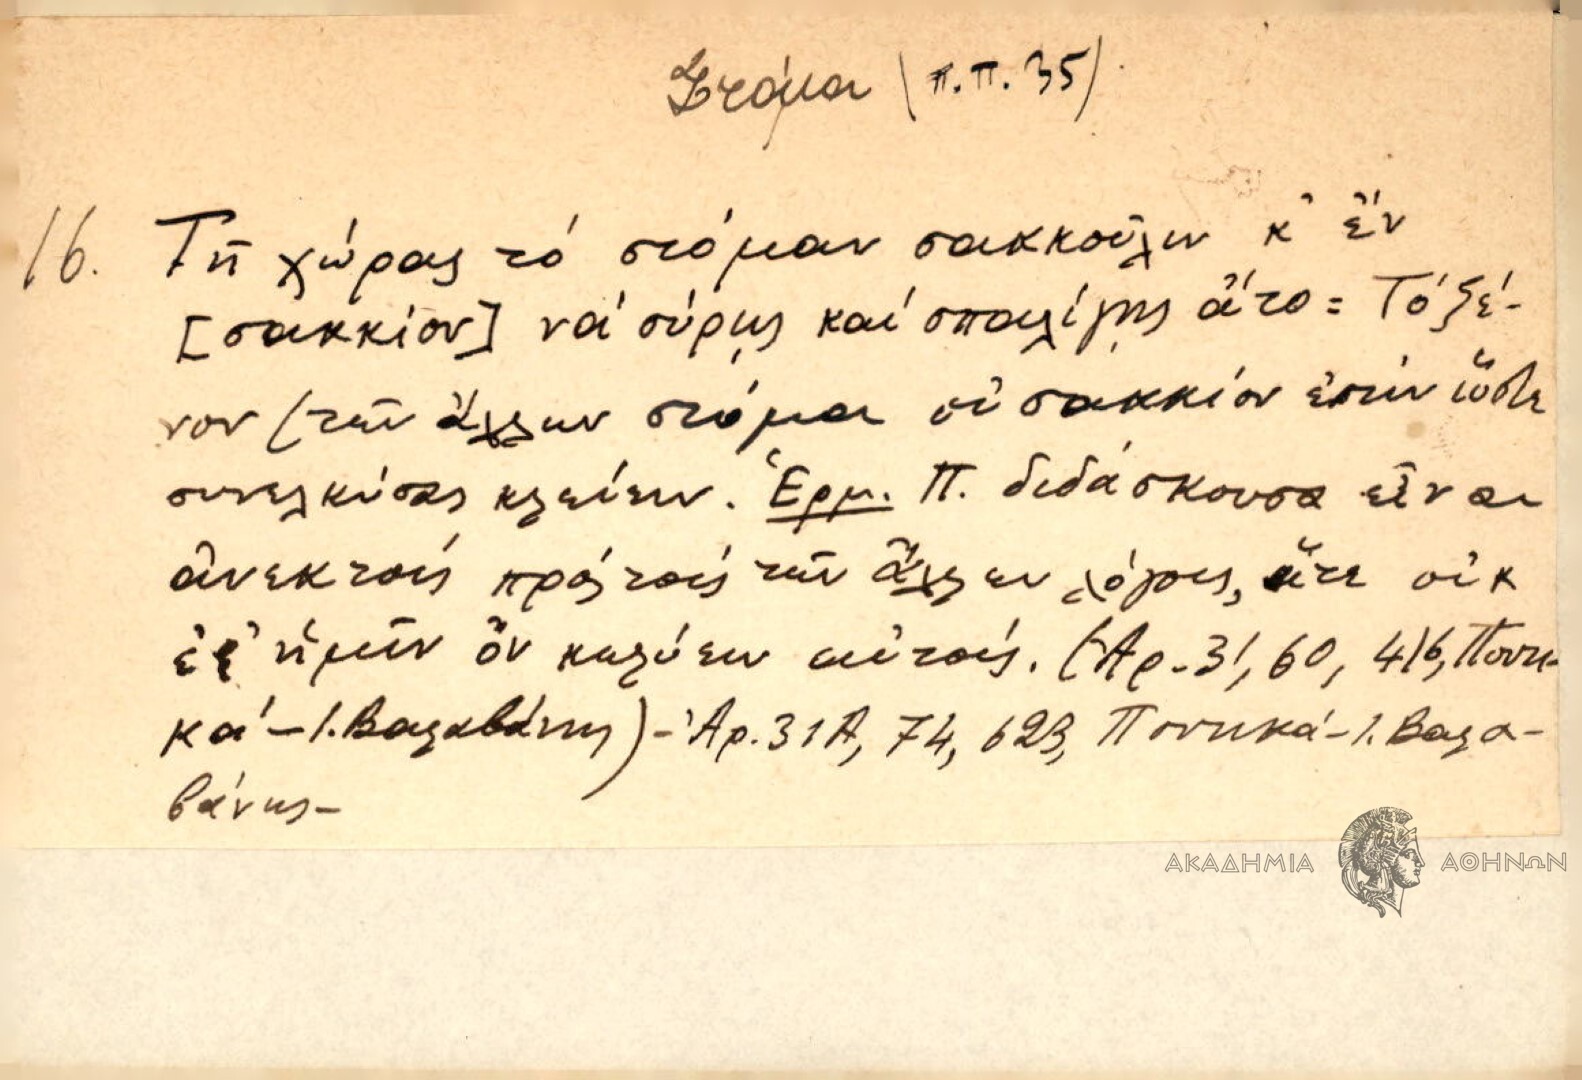 Στόμα (π.π. 35)
16. Τῆ χώρας τό στόμαν σακκούλιν κ' ἔν
[σακκίον] νά σύρης καί σπαλίγης ἄτο = Τό ξέ-
νον (τῶν ἄλλων στόμα οὐ σακκίον ἐστίν ὥστε
συνελκύσας κλείειν. Ἑρμ. Π. διδάσκουσα εἶναι
ἀνεκτούς πρός τούς τῶν ἄλλων λόγους, ἅτε οὐκ
ἐξ' ἡμῶν ὄν κωλύειν αὐτούς. (Ἀρ. 31, 60, 416, Ποντι-
κά - Ι. Βαλαβάνης) - Ἀρ. 31Α, 74, 623, Ποντικά - Ι. Βαλα-
βάνης -
ΑΚΑΔΗΜΙΑ ΑΘΗΝΩΝ